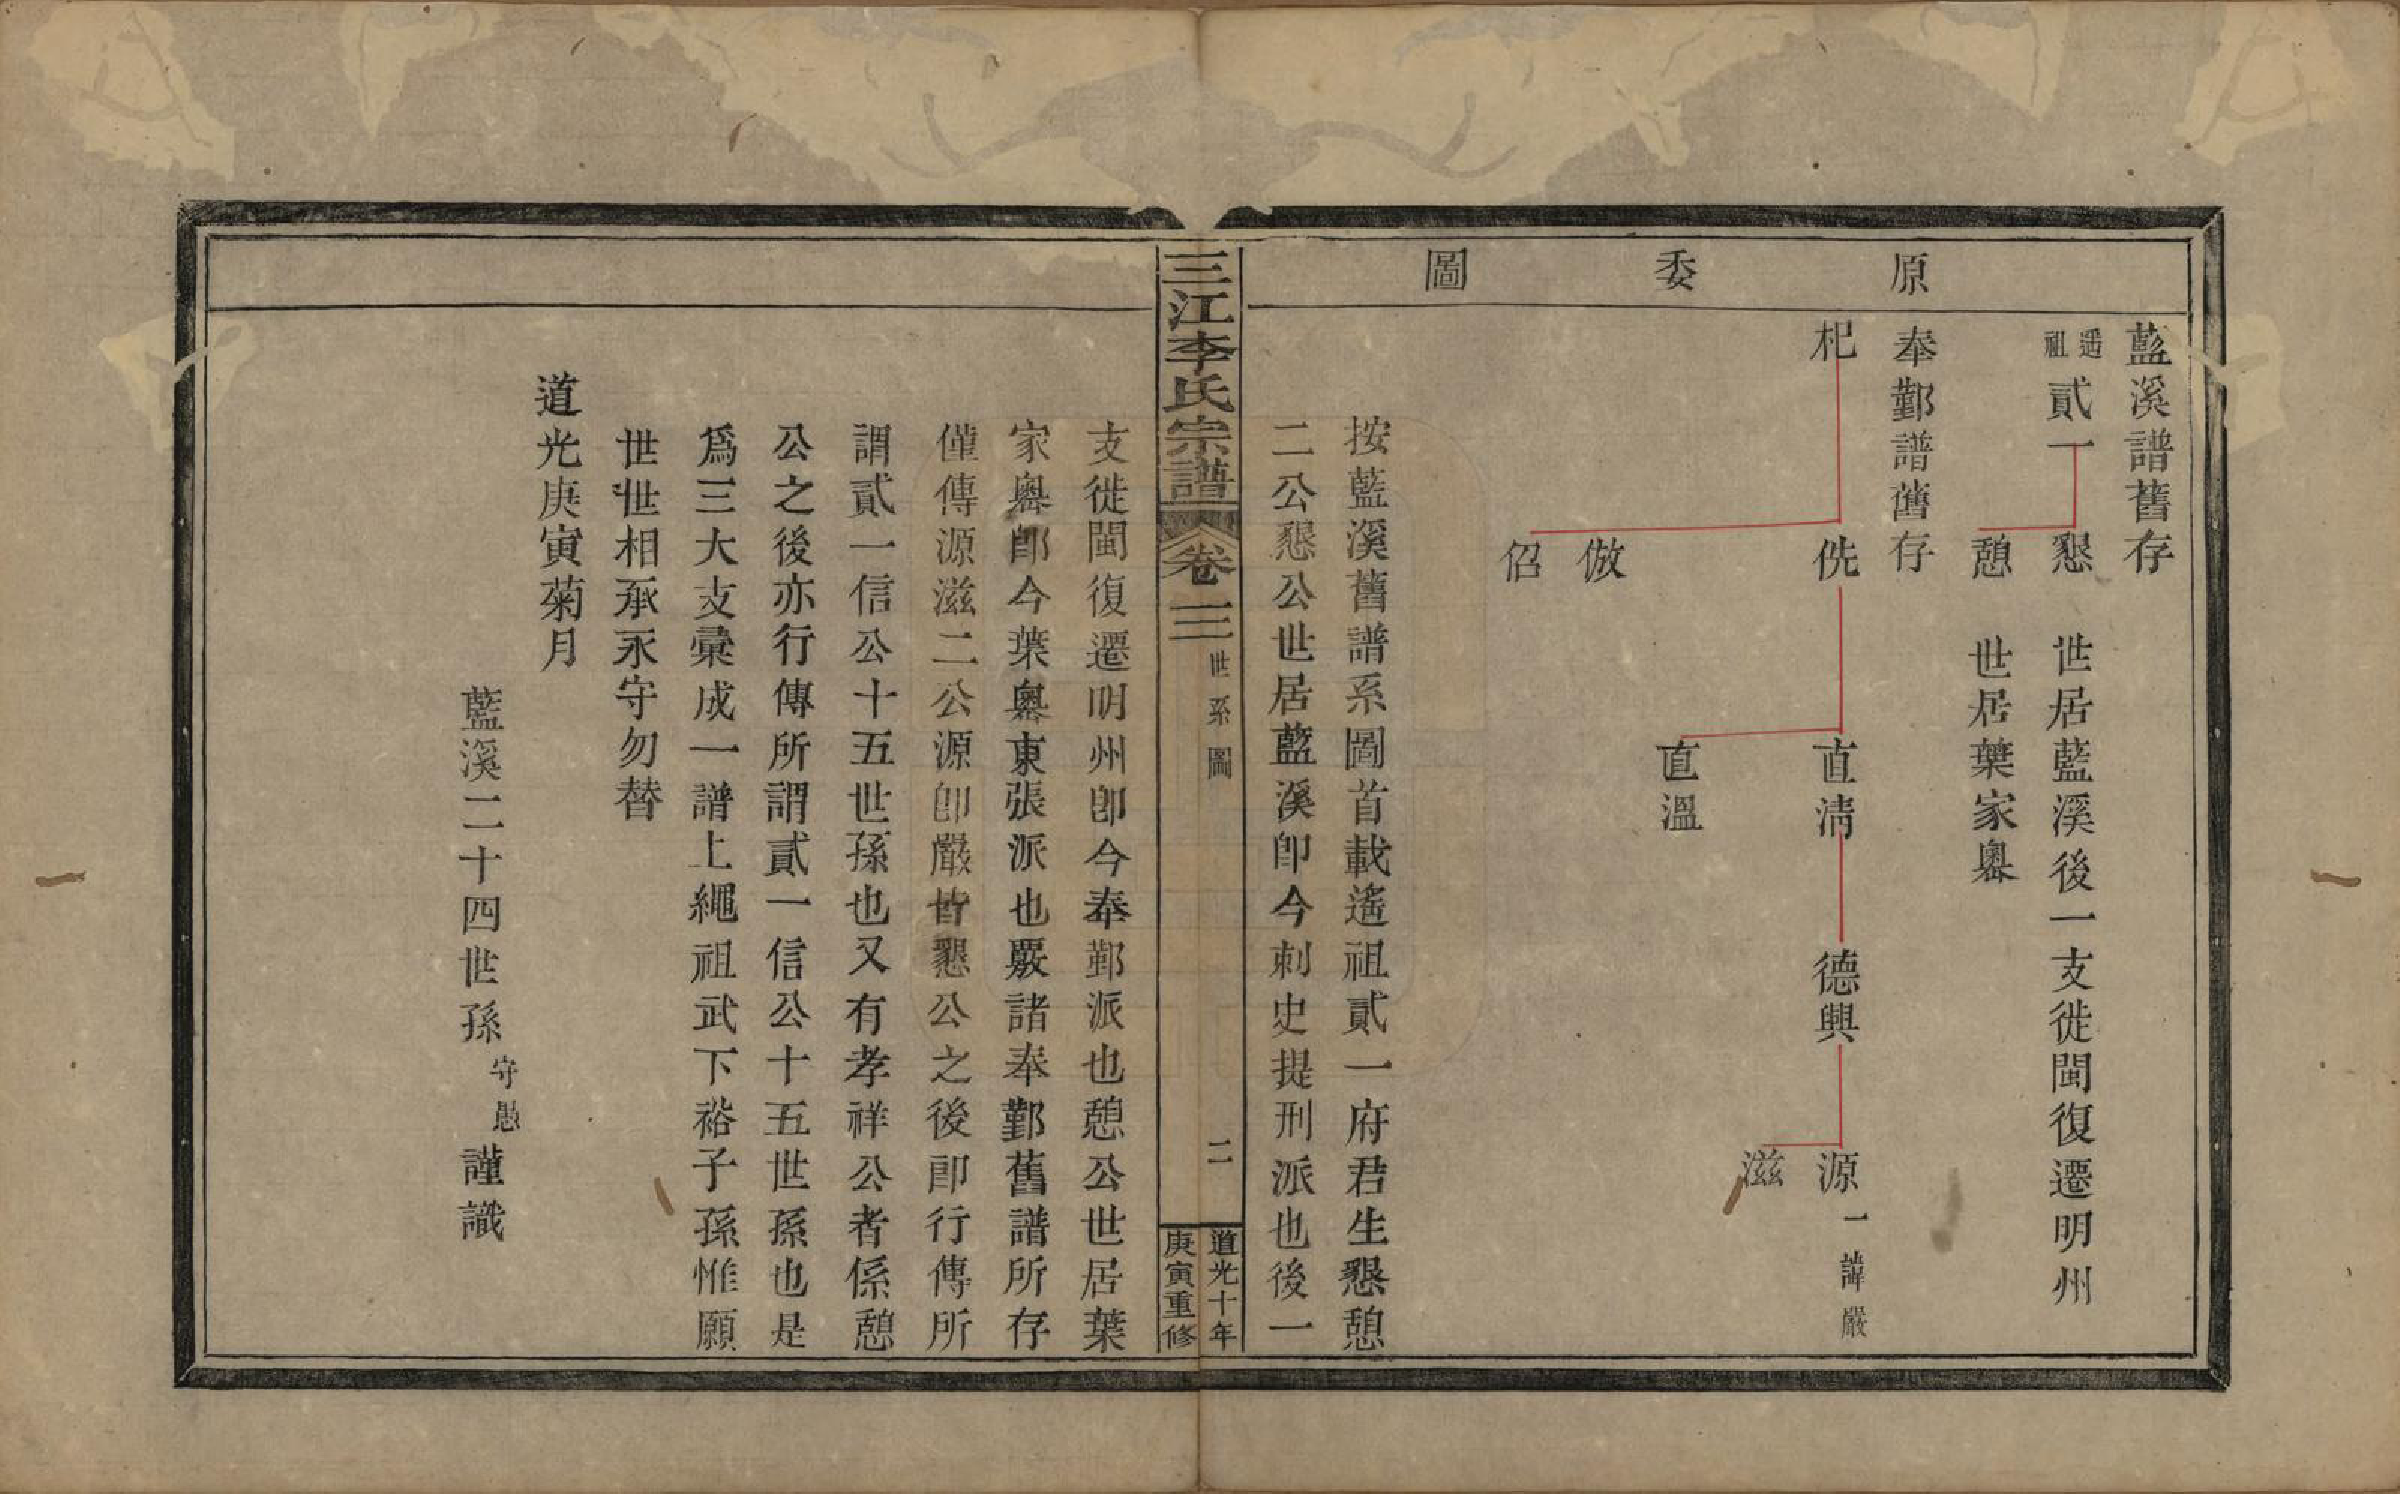 原委圖
藍溪譜舊存
遥祖 貳一 懇 世居藍溪後一支徙閩復遷明州
憩 世居葉家嶴
奉鄞譜舊存
杞 侁 直淸 德興 源 一諱嚴
滋
直溫
倣
佋
按藍溪舊譜系圖首載遙祖貳一府君生懇憩
二公懇公世居藍溪卽今刺史提刑派也後一
三江李氏宗譜 卷三 世系圖 二 道光十年庚寅重修
支徙閩復遷明州卽今奉鄞派也憩公世居葉
家嶴卽今葉嶴東張派也覈諸奉鄞舊譜所存
僅傳源滋二公源卽嚴皆懇公之後卽行傳所
謂貳一信公十五世孫也又有孝祥公者係憩
公之後亦行傳所謂貳一信公十五世孫也是
爲三大支彙成一譜上繩祖武下裕子孫惟願
世世相承永守勿替
道光庚寅菊月
藍溪二十四世孫守愚謹識